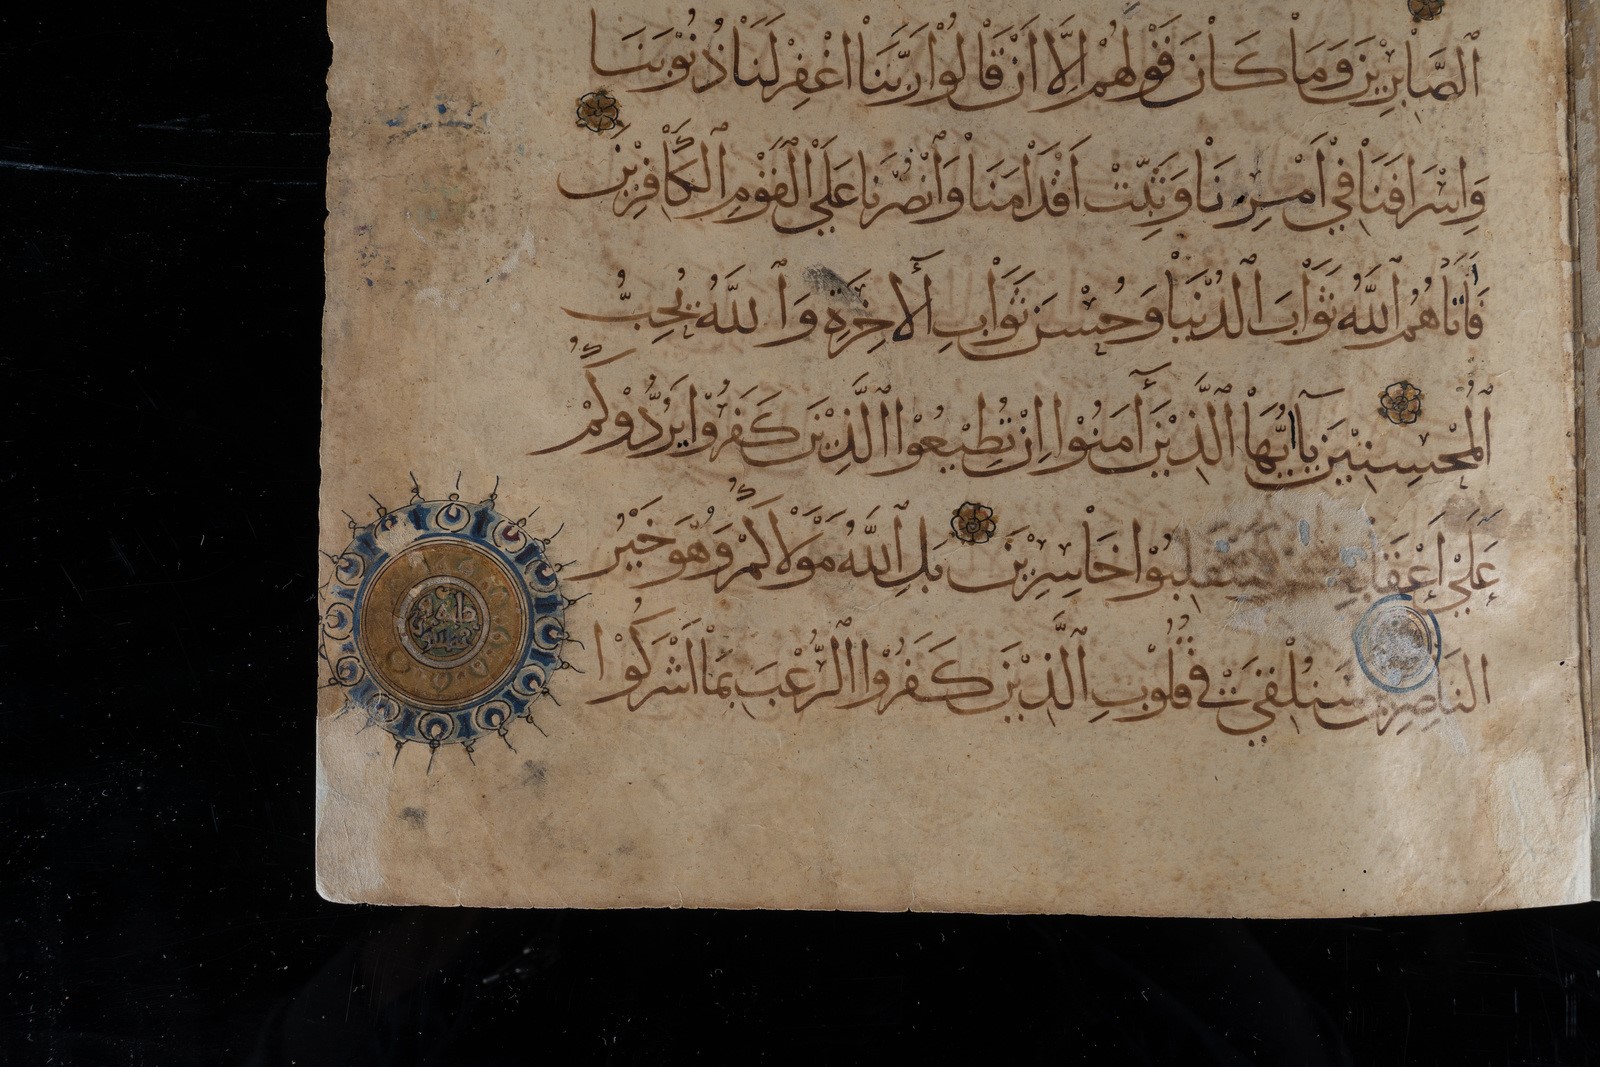 ٱلصَّابِرِيْنَ وَمَا كَانَ قَوْلَهُمْ اِلَّا اَنْ قَالُوا رَبَّنَا اغْفِرْ لَنَا ذُنُوْبَنَا
وَاِسْرَافَنَا فِي اَمْرِنَا وَثَبِّتْ اَقْدَامَنَا وَانْصُرْنَا عَلَي الْقَوْمِ الْكَافِرِيْنَ
فَاَتَاهُمُ اللَّهُ ثَوَابَ الدُّنْيَا وَحُسْنَ ثَوَابِ الْاَخِرَةِ وَاللَّهُ يُحِبُّ
الْمُحْسِنِيْنَ يَا اَيُّهَا الَّذِيْنَ آمَنُوا اِنْ تُطِيْعُوا الَّذِيْنَ كَفَرُوْا يَرُدُّوْكُمْ
عَلَي اَعْقَابِكُمْ فَتَنْقَلِبُوْا خَاسِرِيْنَ بَلِ اللَّهُ مَوْلَاكُمْ وَهُوَ خَيْرُ
النَّاصِرِيْنَ سَنُلْقِيْ فِيْ قُلُوْبِ الَّذِيْنَ كَفَرُوْا الرُّعْبَ بِمَا اَشْرَكُوْا